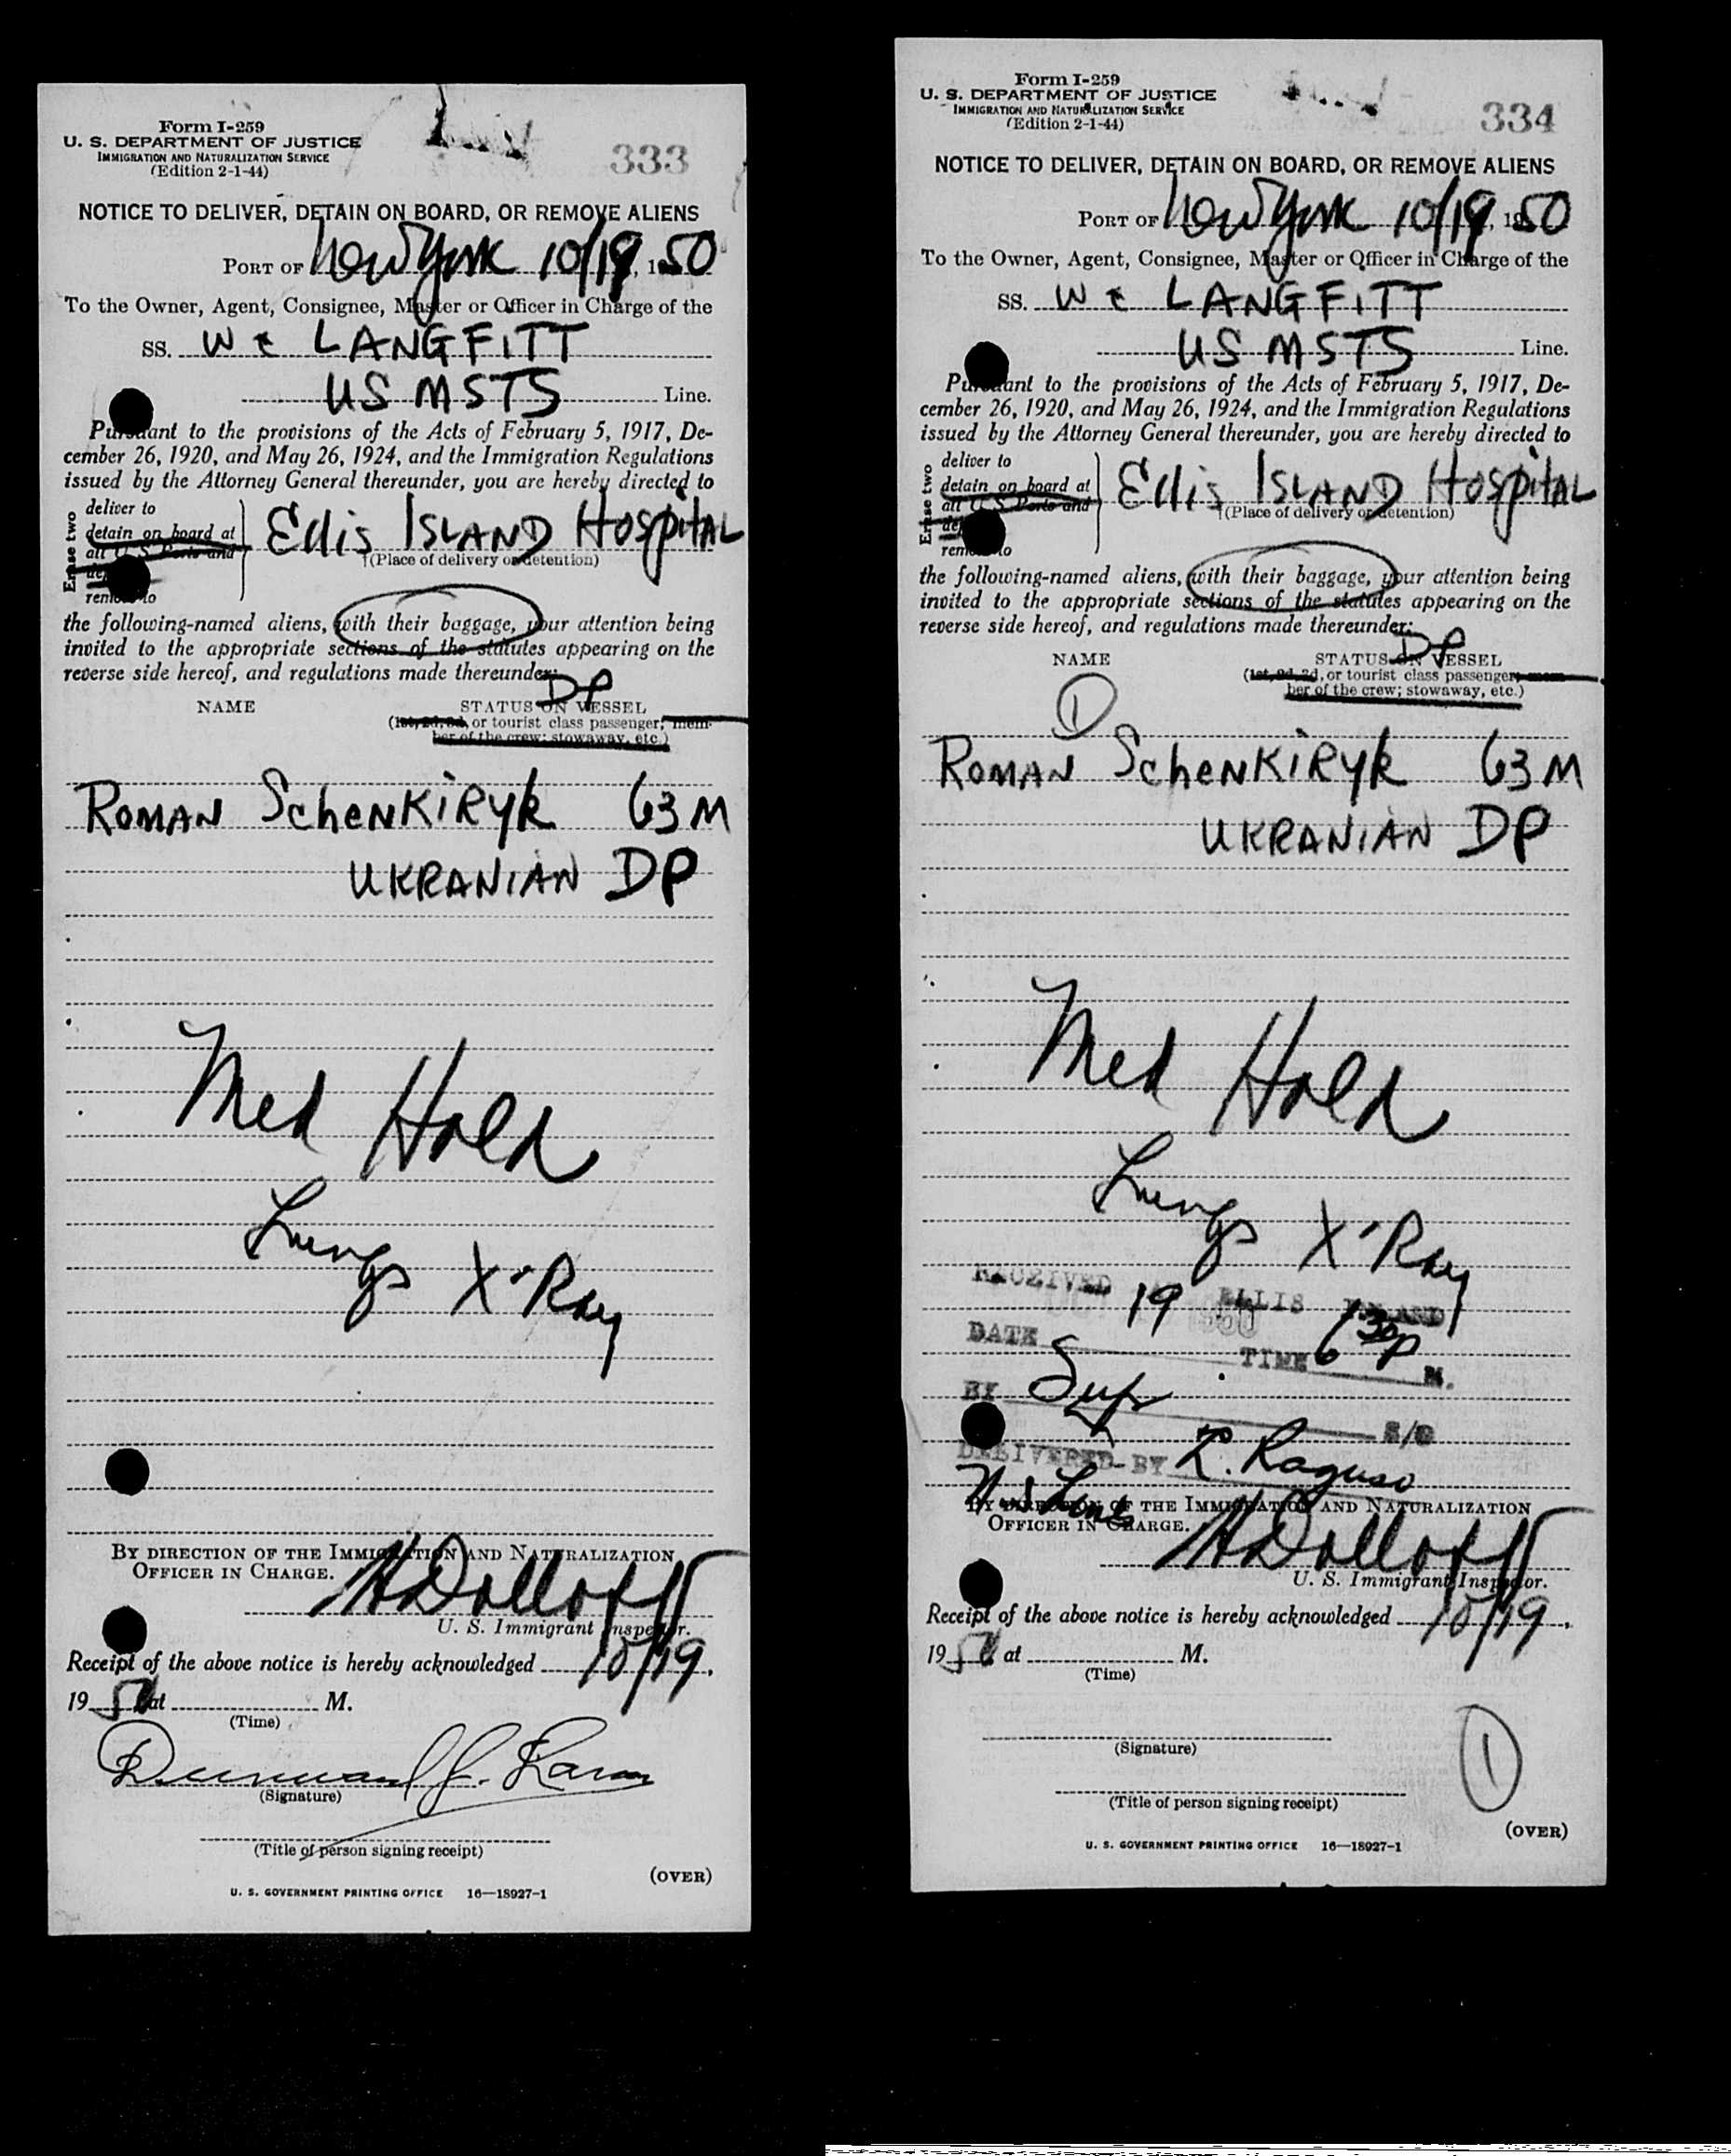 Form I-259
U. S. DEPARTMENT OF JUSTICE
IMMIGRATION AND NATURALIZATION SERVICE
(Edition 2-1-44)
333
NOTICE TO DELIVER, DETAIN ON BOARD, OR REMOVE ALIENS
PORT OF New York 10/19, 1950
To the Owner, Agent, Consignee, Master or Officer in Charge of the
SS. W C LANGFITT
US MSTS Line.
Pursuant to the provisions of the Acts of February 5, 1917, De-
cember 26, 1920, and May 26, 1924, and the Immigration Regulations
issued by the Attorney General thereunder, you are hereby directed to
Erase two
deliver to
detain on board at
all U. S. Ports and
remove to
Ellis ISLAND HospitAL
(Place of delivery or detention)
the following-named aliens, with their baggage, your attention being
invited to the appropriate sections of the statutes appearing on the
reverse side hereof, and regulations made thereunder:
DP
NAME STATUS ON VESSEL
(1st, 2d, 3d, or tourist class passenger, mem-
ber of the crew; stowaway, etc.)
ROMAN SchENKiRyk 63 M
UKRANIAN DP
Med Hold
Lungs X-Ray
BY DIRECTION OF THE IMMIGRATION AND NATURALIZATION
OFFICER IN CHARGE.
H Dolloff
U. S. Immigrant Inspector.
Receipt of the above notice is hereby acknowledged 10/19,
1950 at M.
(Time)
(Signature)
(Title of person signing receipt)
(OVER)
U. S. GOVERNMENT PRINTING OFFICE 16—18927-1
Form I-259
U. S. DEPARTMENT OF JUSTICE
IMMIGRATION AND NATURALIZATION SERVICE
(Edition 2-1-44)
334
NOTICE TO DELIVER, DETAIN ON BOARD, OR REMOVE ALIENS
PORT OF New York 10/19, 1950
To the Owner, Agent, Consignee, Master or Officer in Charge of the
SS. W C LANGFITT
US MSTS Line.
Pursuant to the provisions of the Acts of February 5, 1917, De-
cember 26, 1920, and May 26, 1924, and the Immigration Regulations
issued by the Attorney General thereunder, you are hereby directed to
Erase two
deliver to
detain on board at
all U. S. Ports and
remove to
Ellis ISLAND HospitAL
(Place of delivery or detention)
the following-named aliens, with their baggage, your attention being
invited to the appropriate sections of the statutes appearing on the
reverse side hereof, and regulations made thereunder:
DP
NAME STATUS ON VESSEL
(1st, 2d, 3d, or tourist class passenger, mem-
ber of the crew; stowaway, etc.)
1
ROMAN SchENKiRyk 63 M
UKRANIAN DP
Med Hold
Lungs X-Ray
RECEIVED AT ELLIS ISLAND
DATE 19 1950 TIME 6 30 P M.
BY
DELIVERED BY R. Raguso
BY DIRECTION OF THE IMMIGRATION AND NATURALIZATION
OFFICER IN CHARGE.
H Dolloff
U. S. Immigrant Inspector.
Receipt of the above notice is hereby acknowledged 10/19,
1950 at M.
(Time)
(Signature)
1
(Title of person signing receipt)
(OVER)
U. S. GOVERNMENT PRINTING OFFICE 16—18927-1